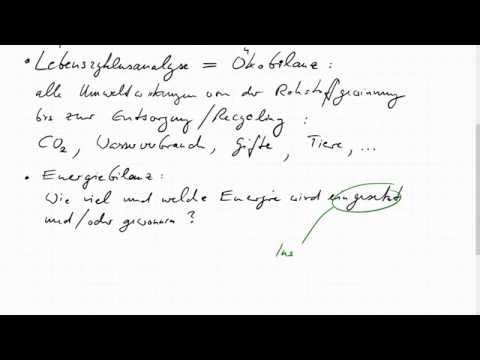 • Lebenszyklusanalyse = Ökobilanz :
alle Umweltwirkungen von der Rohstoffgewinnung
bis zur Entsorgung/Recycling :
CO2, Wasserverbrauch, Gifte, Tiere, ...
• Energiebilanz :
Wie viel und welche Energie wird eingesetzt
und/oder gewonnen ?